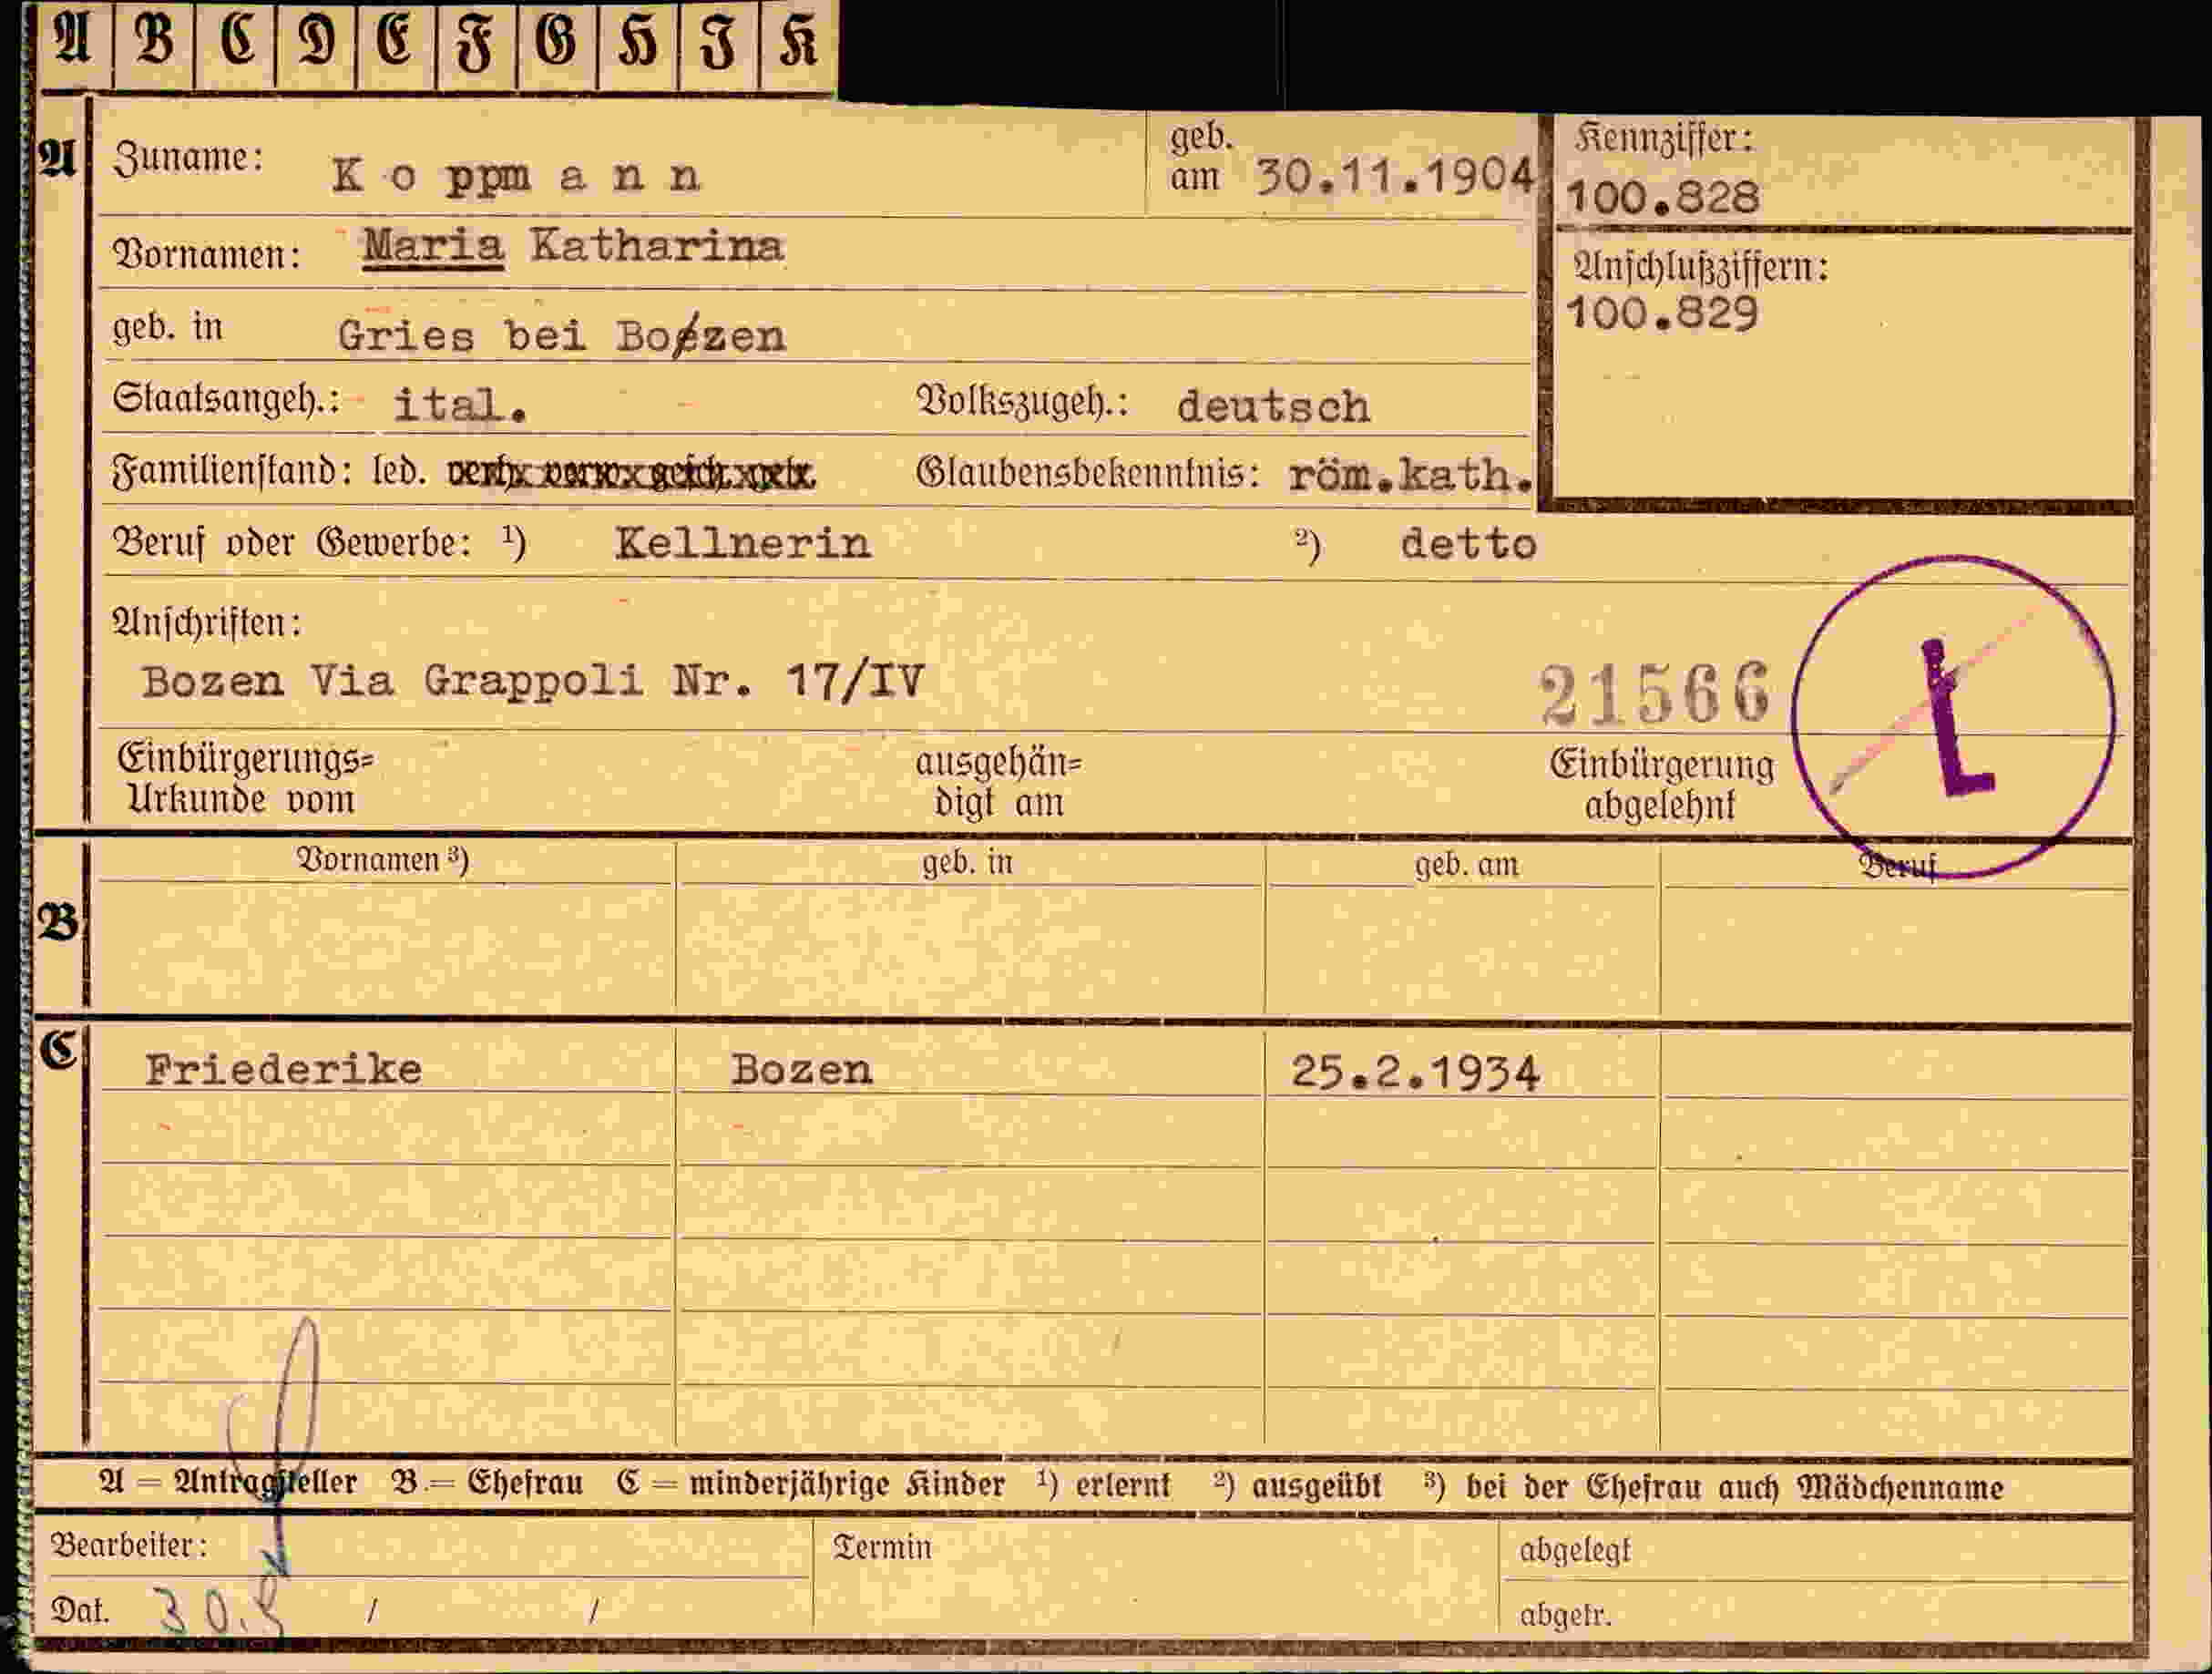 A B C D E F G H I K
A Zuname: Koppmann geb. am 30.11.1904 Kennziffer: 100.828
Vornamen: Maria Katharina Anschlußziffern: 100.829
geb. in Gries bei Bozen
Staatsangeh.: ital. Volkszugeh.: deutsch
Familienstand: led. Glaubensbekenntnis: röm.kath.
Beruf oder Gewerbe: ¹) Kellnerin ²) detto
Anschriften:
Bozen Via Grappoli Nr. 17/IV 21566 L
Einbürgerungs= ausgehän= Einbürgerung
Urkunde vom digt am abgelehnt
Vornamen ³) geb. in geb. am Beruf
B
C Friederike Bozen 25.2.1934
A = Antragsteller B = Ehefrau C = minderjährige Kinder ¹) erlernt ²) ausgeübt ³) bei der Ehefrau auch Mädchenname
Bearbeiter: Termin abgelegt
Dat. 30. / / abgetr.